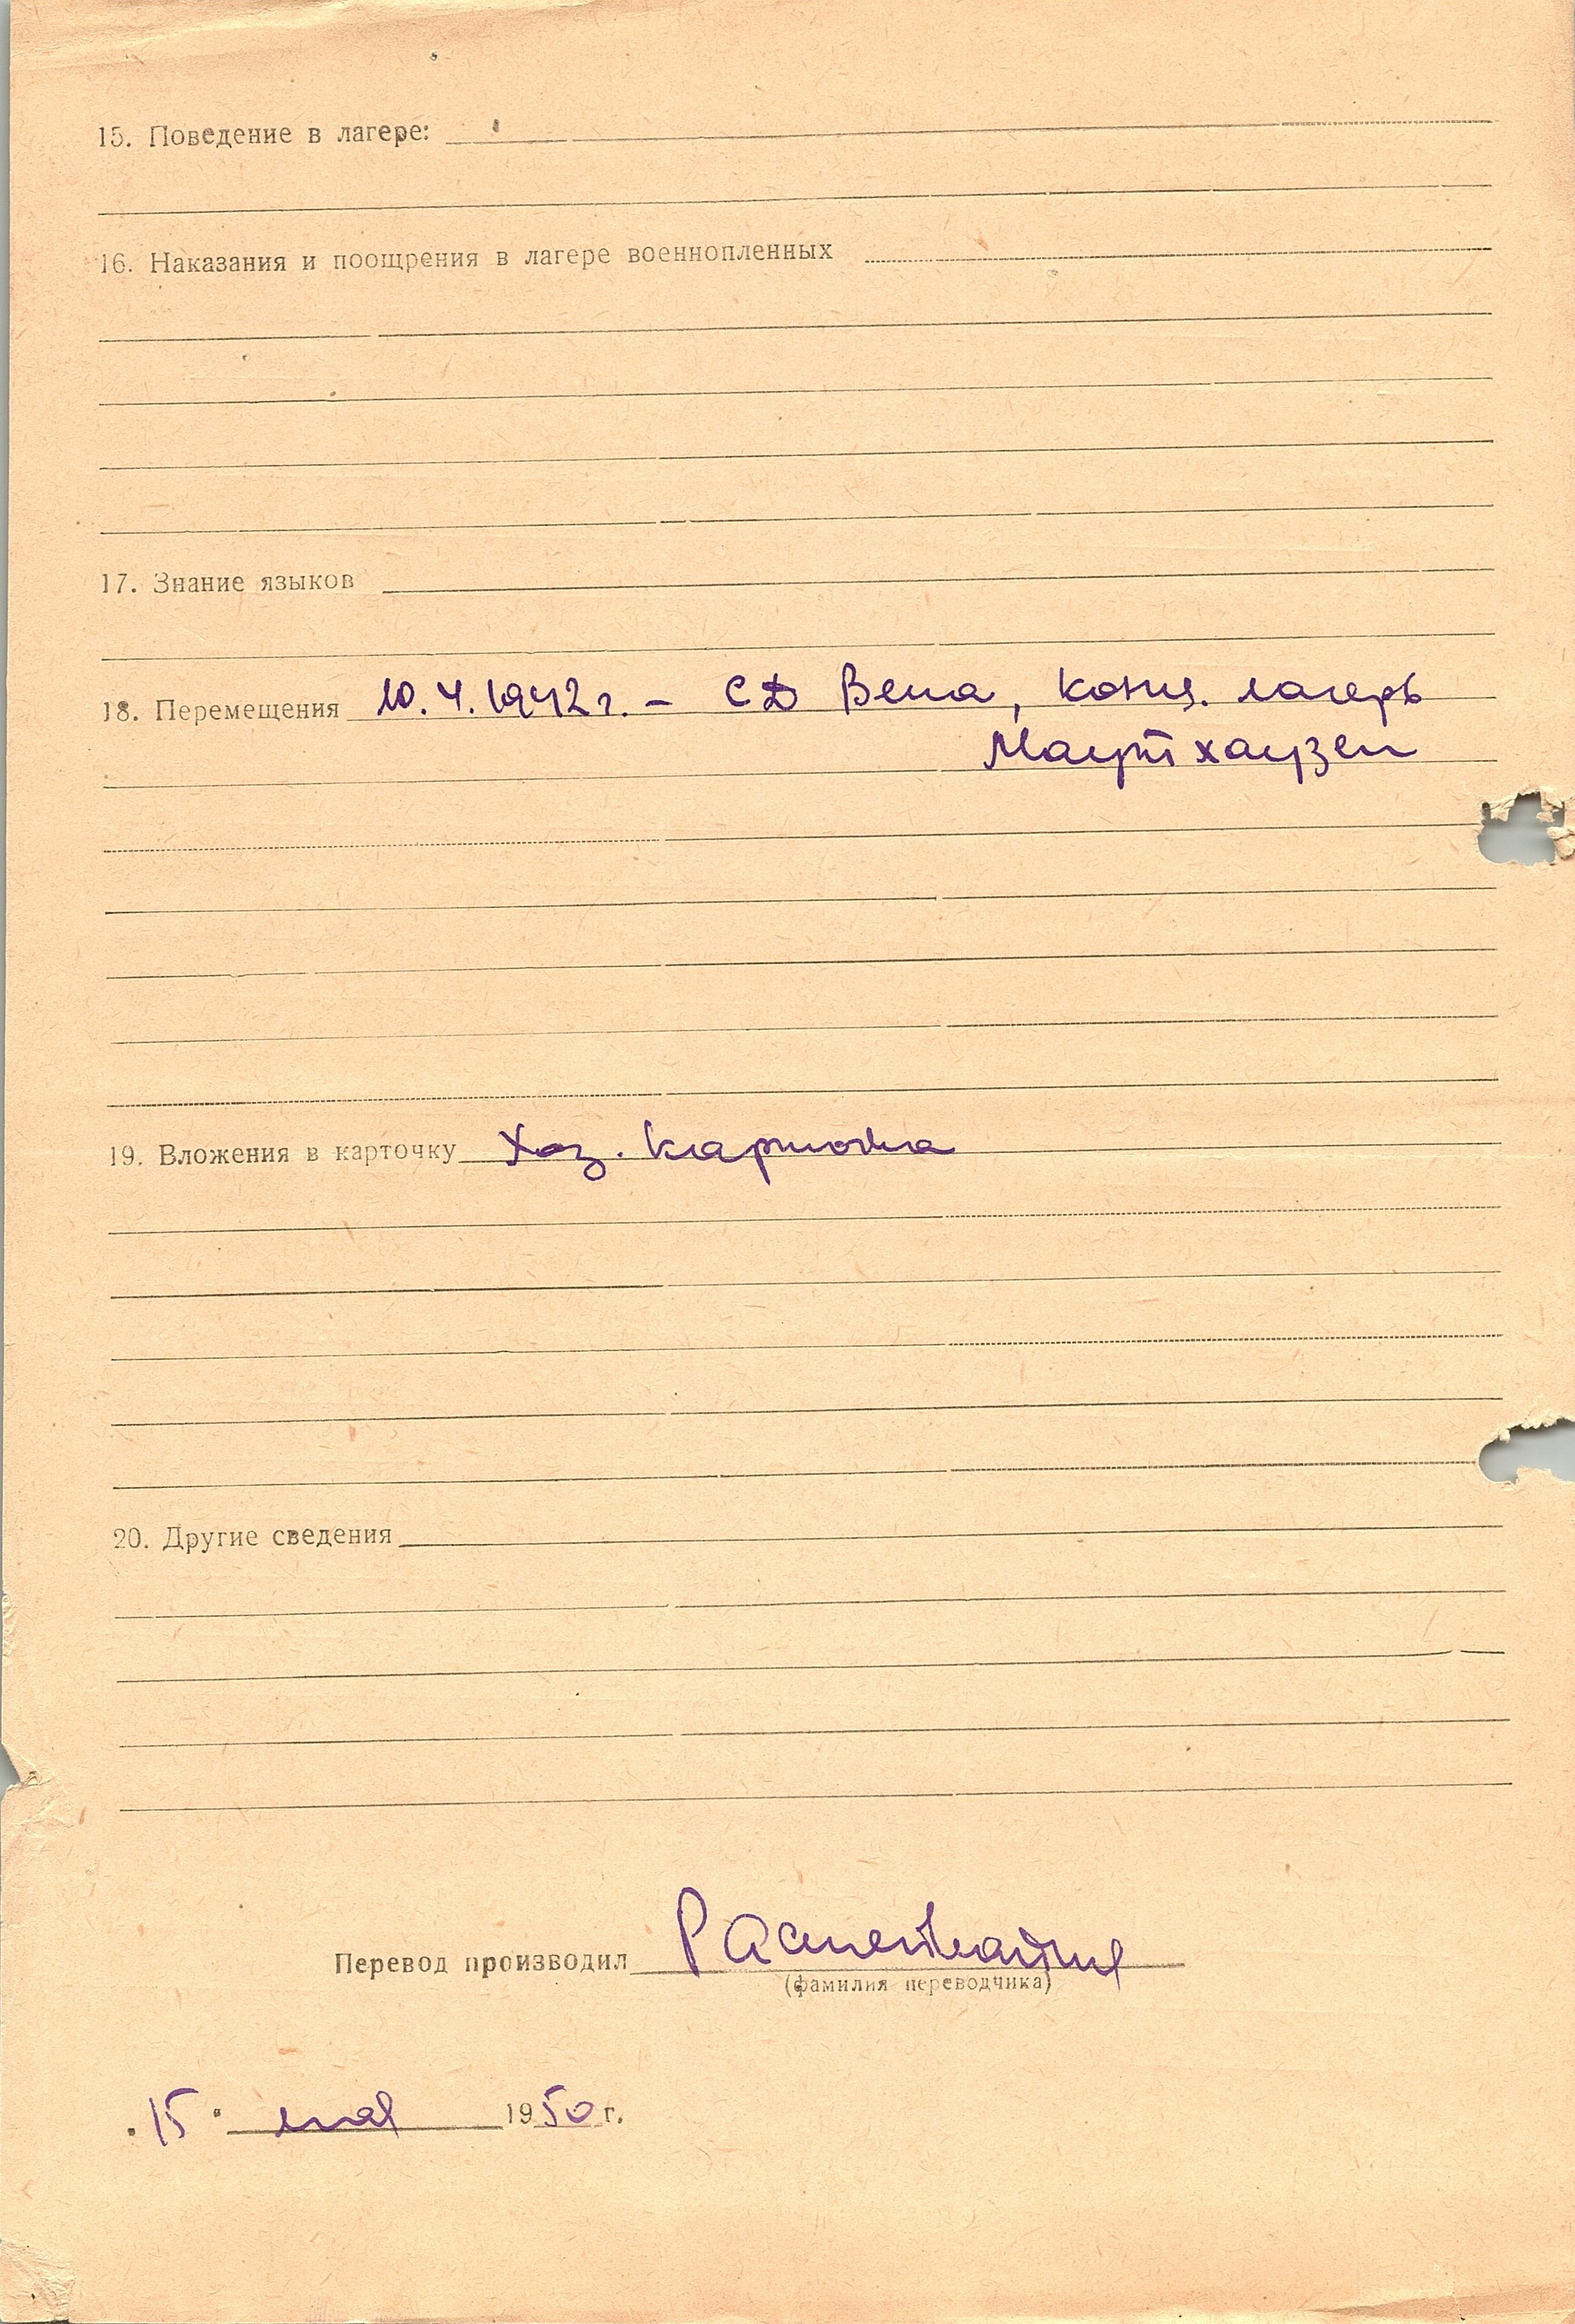 15. Поведение в лагере:
16. Наказания и поощрения в лагере военнопленных
17. Знание языков
18. Перемещения 10.4.1942 г. – СД Вена, конц. лагерь
Маутхаузен
19. Вложения в карточку Хоз. карточка
20. Другие сведения
Перевод производил
(фамилия переводчика)
"15" мая 1950 г.